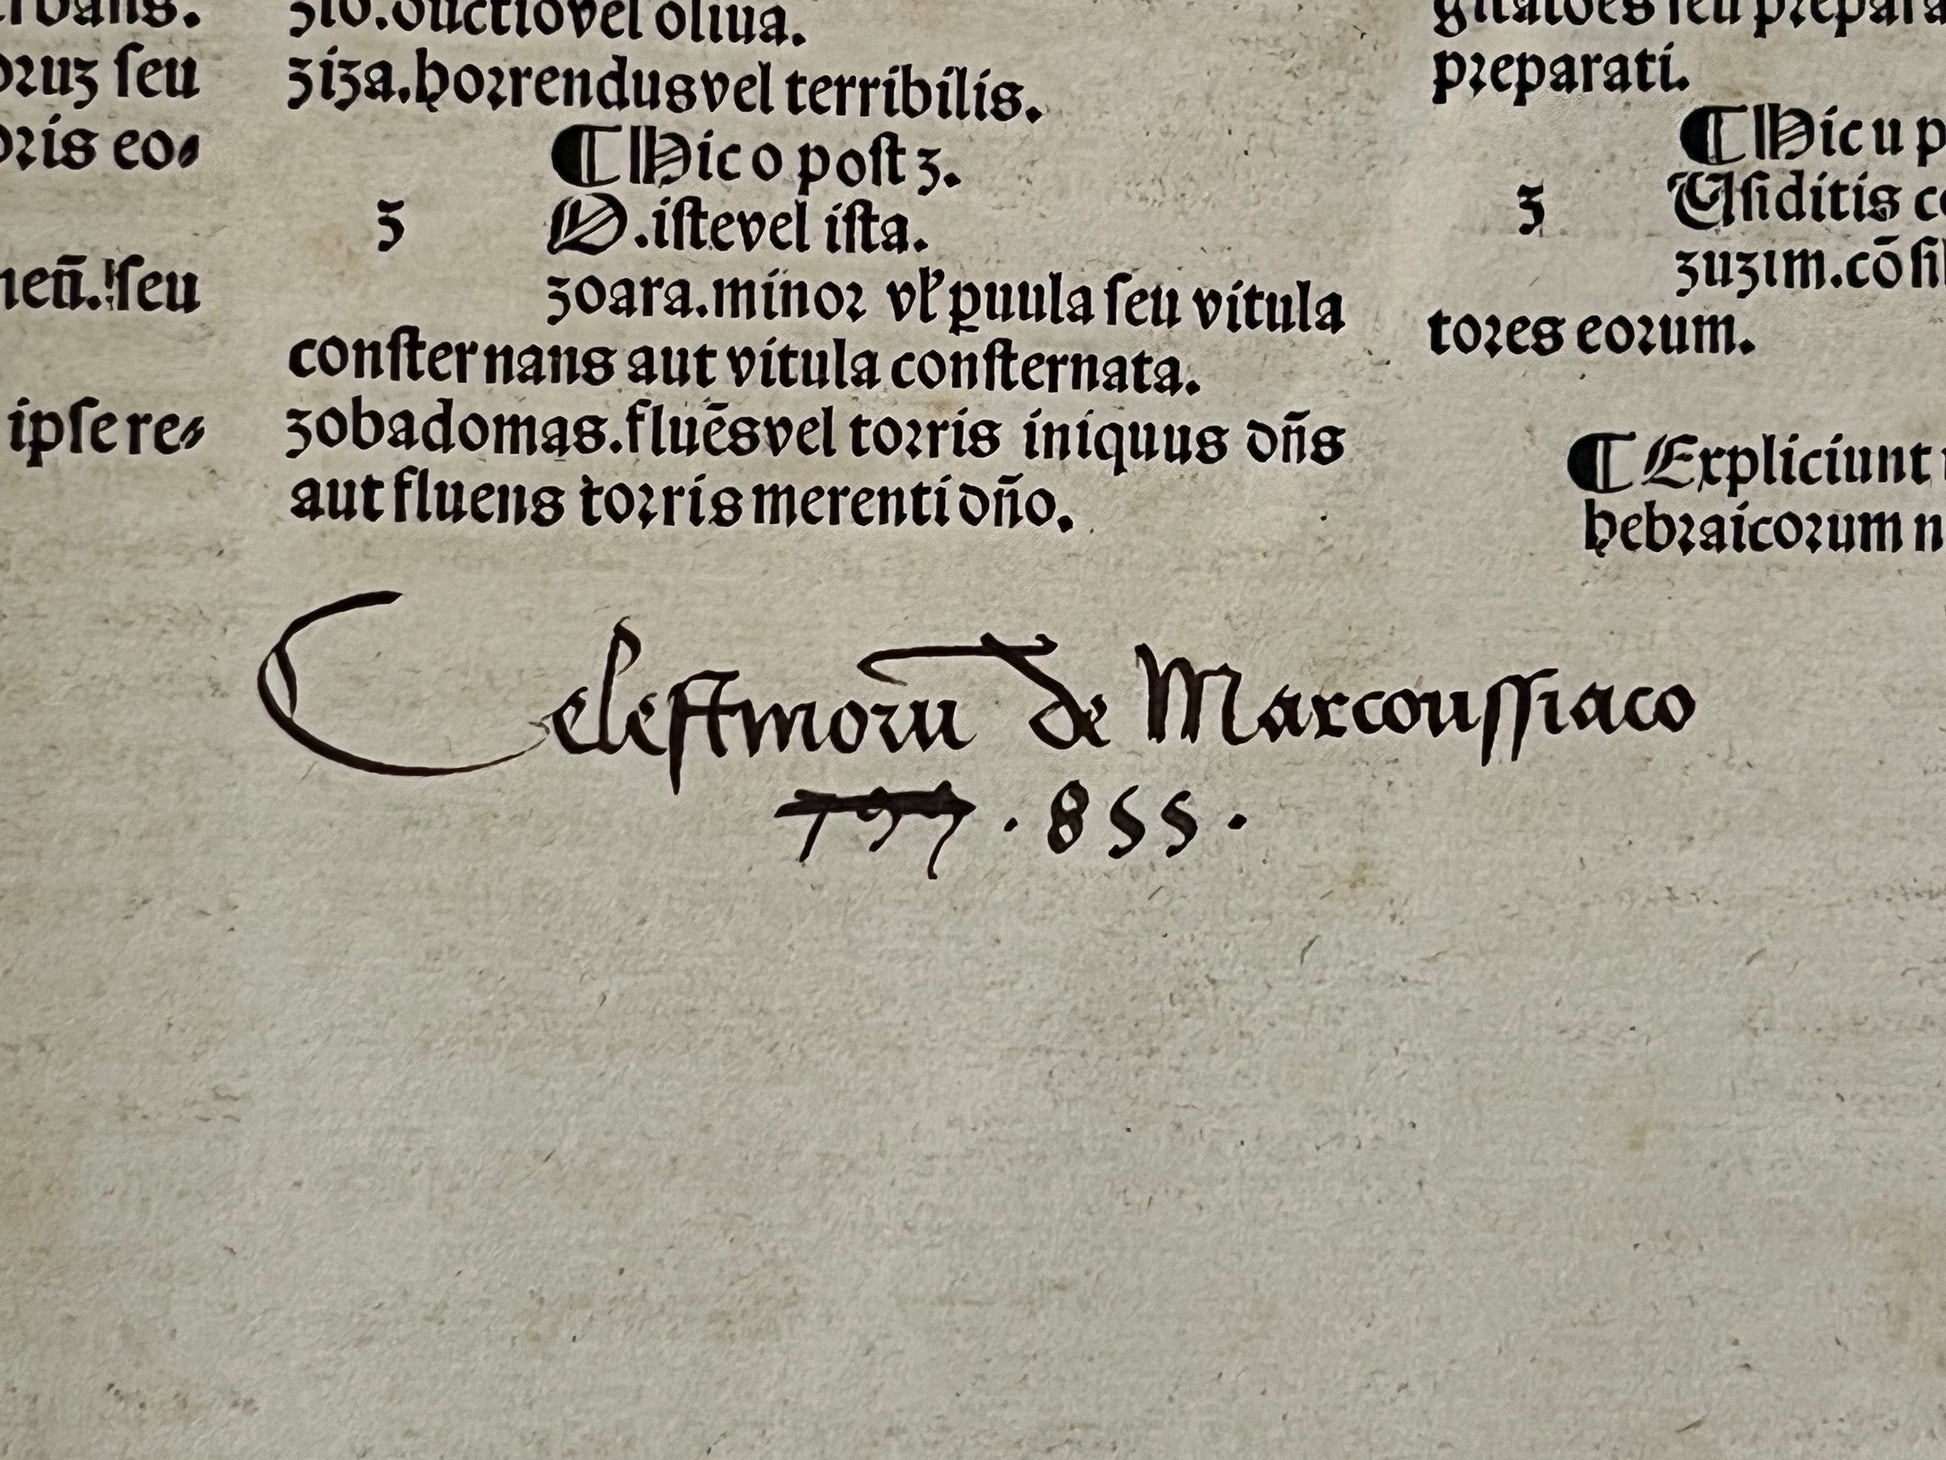 oꝛuꝫ ſeu
oꝛis eo⸗
neñ. ſeu
ipſe re⸗
ꝫio.ductio vel oliua.
ꝫiꝫa.hoꝛrendus vel terribilis.
¶ Hic o poſt ꝫ.
ꝫ O.iſte vel iſta.
ꝫoara.minoꝛ vl̓ ꝑuula ſeu vitula
conſternans aut vitula conſternata.
ꝫobadomas.fluēs vel toꝛris iniquus dñs
aut fluens toꝛris merenti dño.
preparati.
¶ Hic u p
ꝫ Uſiditis c
ꝫuꝫim.cōſil
toꝛes eoꝛum.
¶ Expliciunt
hebꝛaicoꝛum n
Celeſtinoꝛū de Marcouſſiaco
797 . 855 .